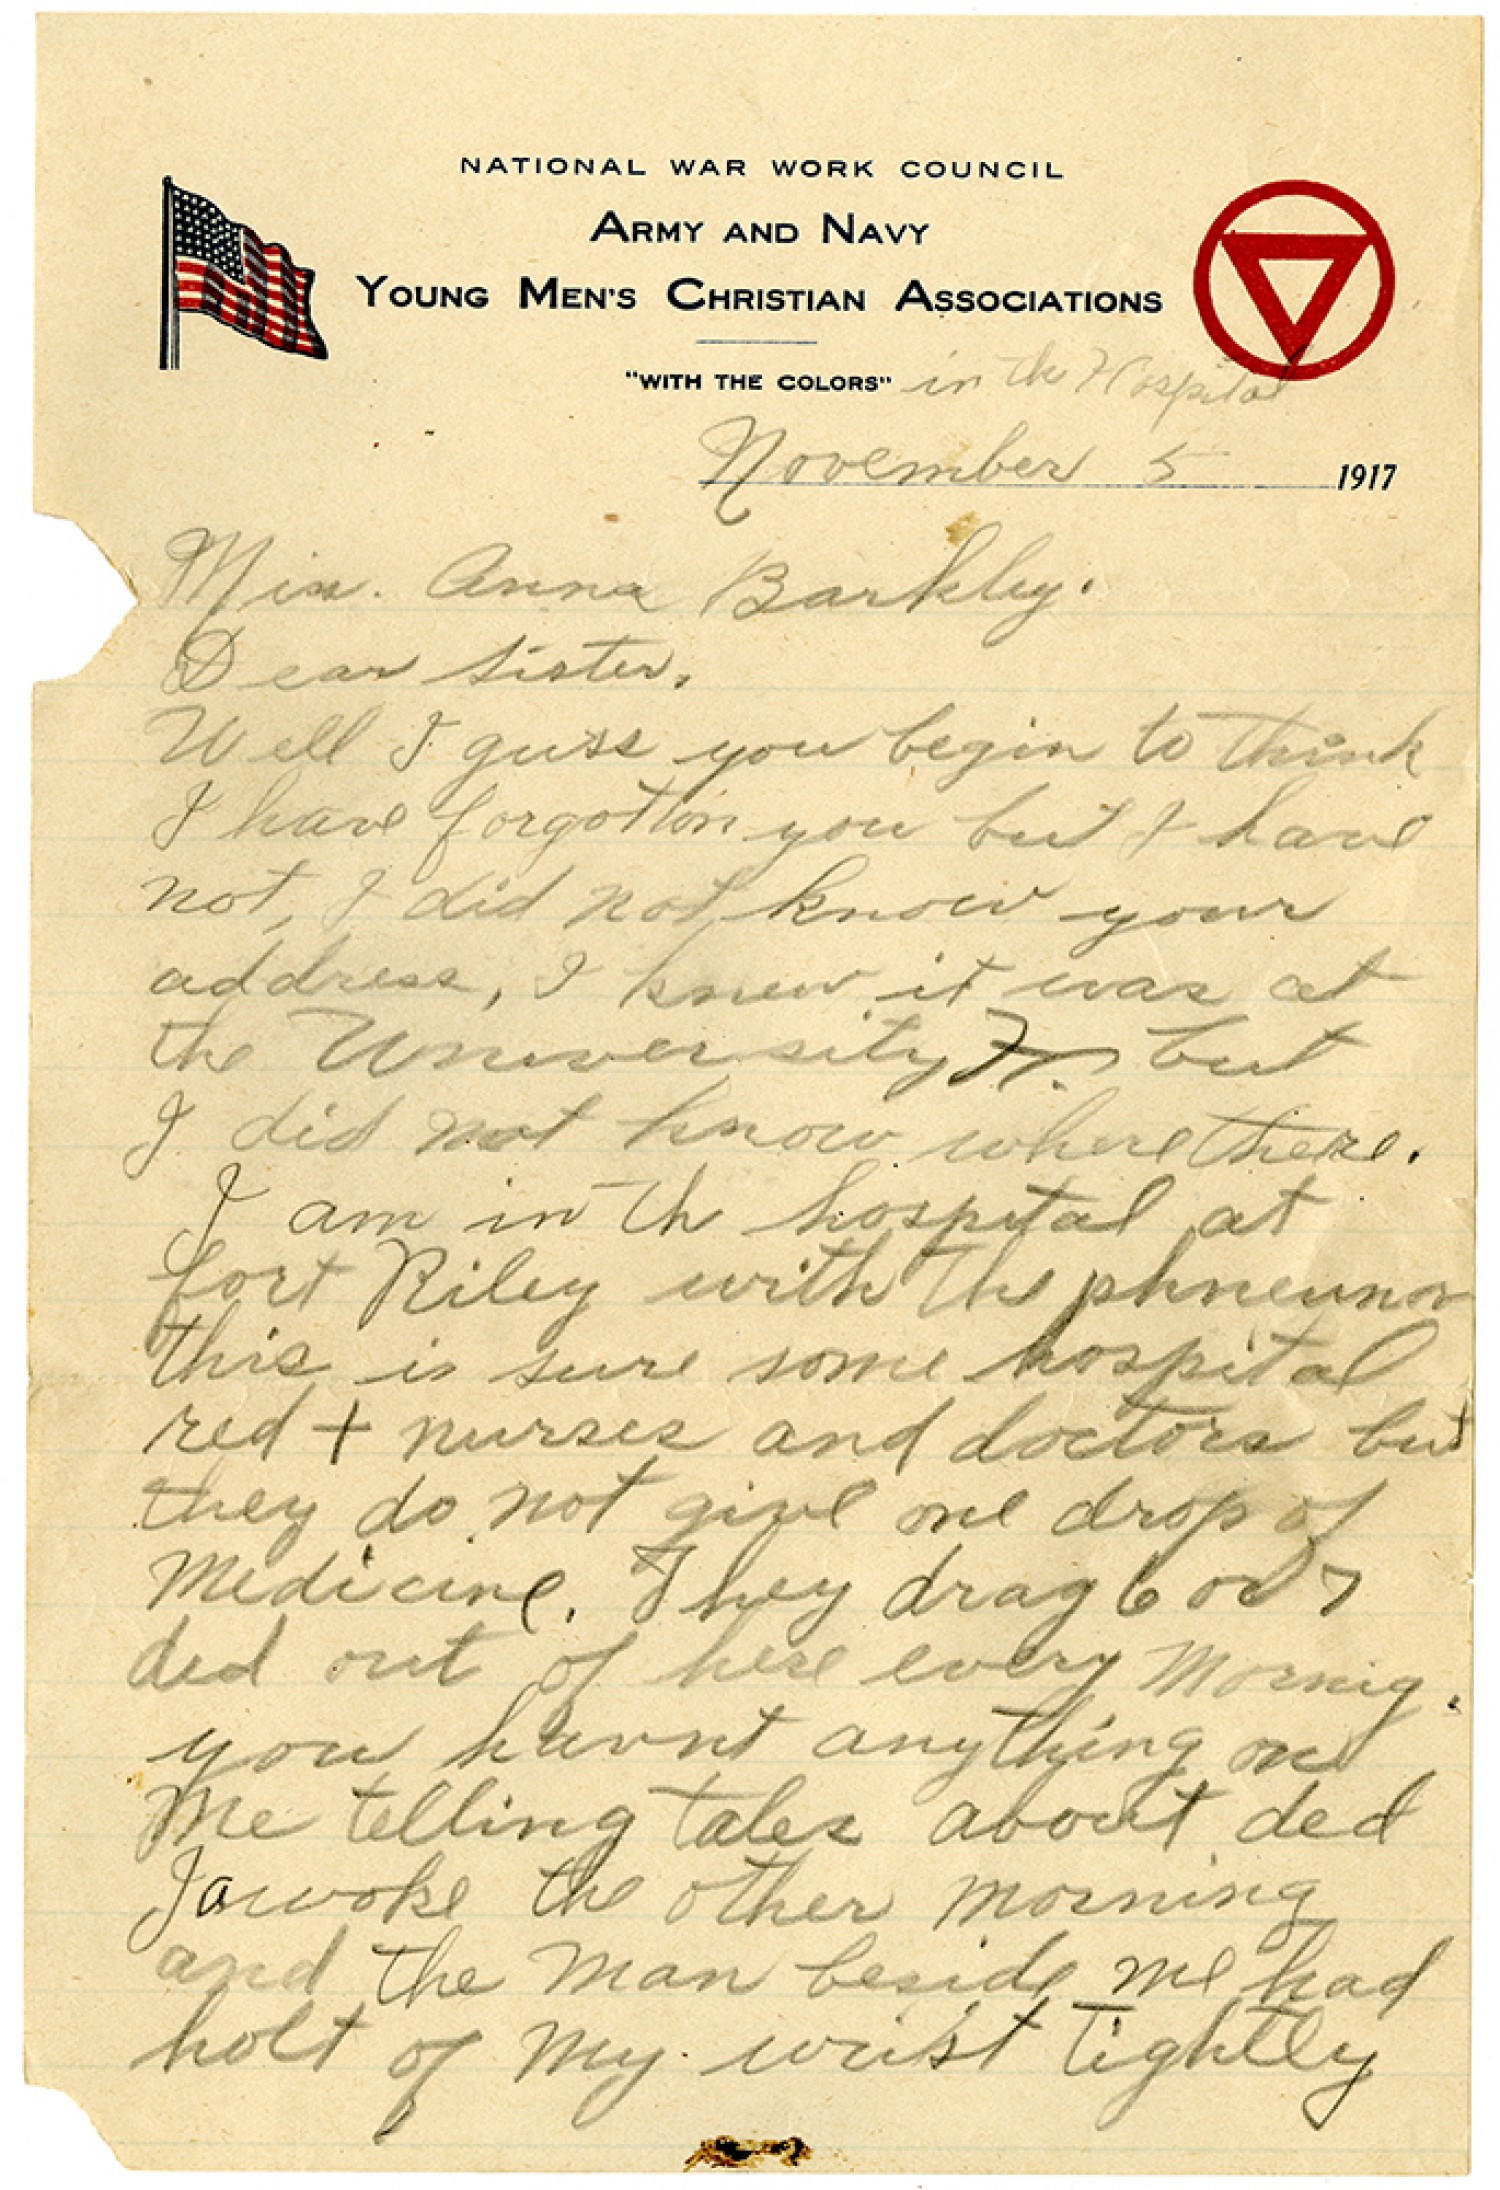 NATIONAL WAR WORK COUNCIL
ARMY AND NAVY
YOUNG MEN'S CHRISTIAN ASSOCIATIONS
"WITH THE COLORS" in the Hospital
November 5 1917
Miss. Anna Barkley.
Dear Sister.
Well I guss you begin to think
I have forgotton you but I have
not, I did not know your
address, I knew it was at
the University but
I did not know where there.
I am in th hospital at
fort Riley with the phneumon
this is sure some hospital
red + nurses and doctors but
they do not give one drop of
Medicine. They drag 6 or 7
ded out of here every Mornig.
you havnt anything on
Me telling tales about ded
I awoke the other morning
and the man beside me had
holt of My wrist Tightly